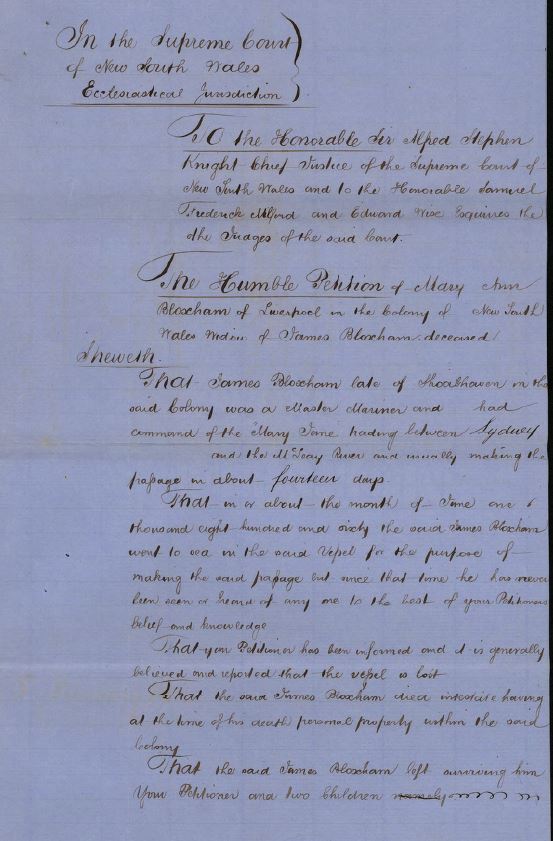 In the Supreme Court
of New South Wales
Ecclesiastical Jurisdiction
To the Honorable Sir Alfred Stephen
Knight Chief Justice of the Supreme Court of
New South Wales and to the Honorable Samuel
Frederick Milford and Edward Wise Esquires the
othr Judges of the said Court.
The Humble Petition of Mary Ann
Bloxham of Liverpool in the Colony of New South
Wales Widow of James Bloxham deceased
Sheweth.
That James Bloxham late of Shoalhaven in the
said Colony was a Master Mariner and had
command of the Mary Jane trading between Sydney
and the McLeay River and usually making the
passage in about fourteen days.
That in or about the month of June one
thousand eight hundred and sixty the said James Bloxham
went to sea in the said Vessel for the purpose of
making the said passage but since that time he has never
been seen or heard of any one to the best of your Petitioners
belief and knowledge
That your Petitioner has been informed and it is generally
believed and reported that the vessel is lost
That the said James Bloxham died intestate having
at the time of his death personal property within the said
Colony
That the said James Bloxham left surviving him
Your Petitioner and two children namely